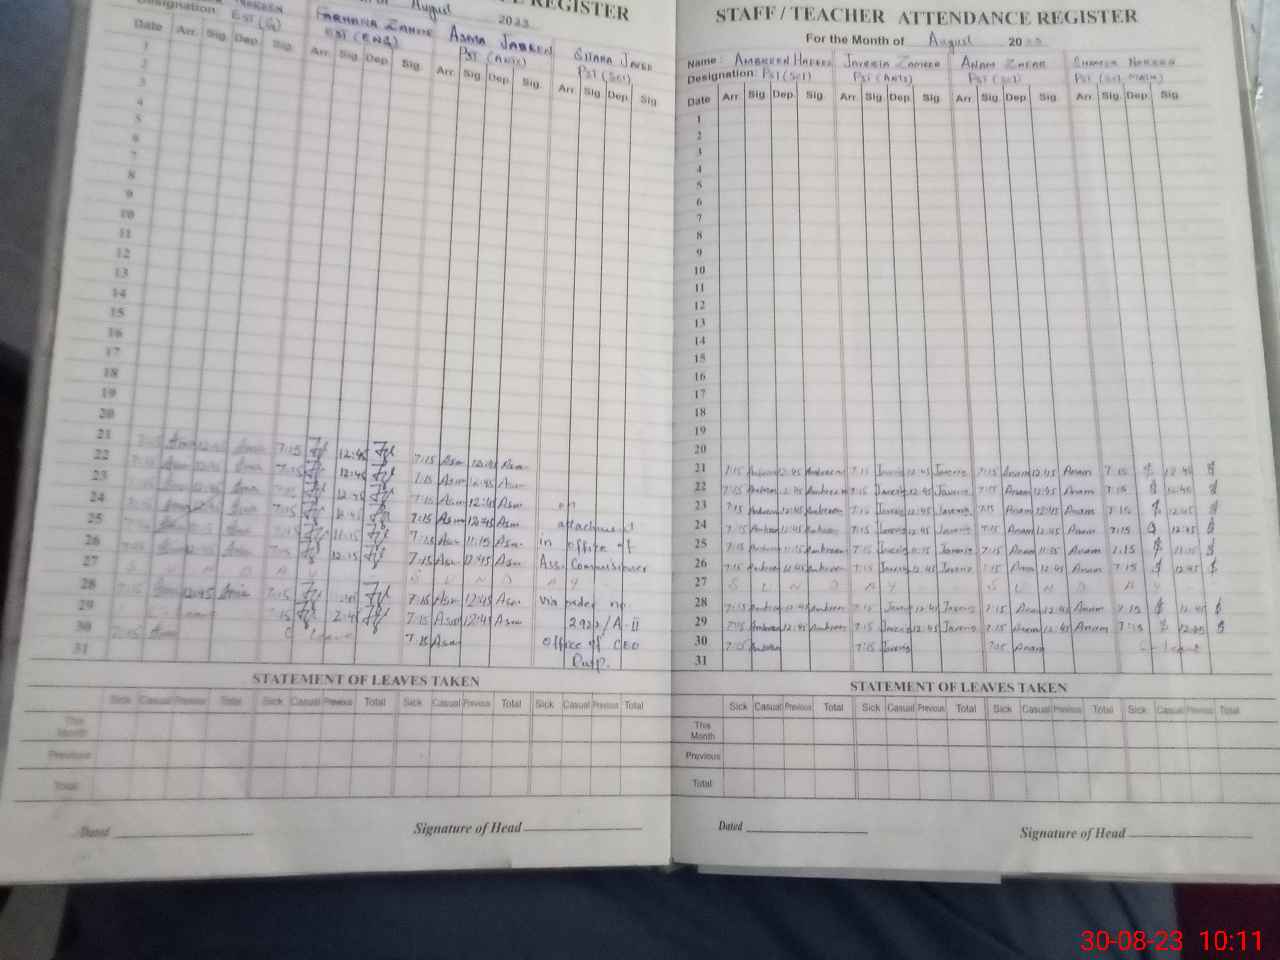 REGISTER
August 2023
Designation EST (S) FARHANA ZAHOOR ASMA JABEEN SITARA JAVED
EST (ENG) PST (ARTS) PST (SCI)
Date Arr. Sig. Dep. Sig. Arr. Sig. Dep. Sig. Arr. Sig. Dep. Sig. Arr. Sig. Dep. Sig.
1
2
3
4
5
6
7
8
9
10
11
12
13
14
15
16
17
18
19
20
21 7:15 12:45 7:15 Asm 12:45 Asm
22 7:15 12:45 7:15 Asm 12:45 Asm
23 12:45 7:15 Asm 12:45 Asm on
24 7:15 12:45 7:15 Asm 12:45 Asm attachment
25 11:15 7:15 Asm 11:15 Asm in office of
26 12:45 7:15 Asm 12:45 Asm Ass. Commissioner
27 S U N D A Y S U N D A Y
28 7:15 12:45 7:15 7:15 Asm 12:45 Asm via order no.
29 7:15 Asm 12:45 Asm /A-II
30 7:15 C leave 7:15 Asm office of CEO
31
STATEMENT OF LEAVES TAKEN
Sick Casual Previous Total Sick Casual Previous Total Sick Casual Previous Total Sick Casual Previous Total
This Month
Previous
Total
Dated Signature of Head
STAFF / TEACHER ATTENDANCE REGISTER
For the Month of August 2023
Name: AMBREEN HAFEEZ JAVERIA ZAMEER ANAM ZAFAR
Designation: PST (SCI) PST (ARTS) PST (SCI) PST (SCI, MATH)
Date Arr. Sig. Dep. Sig. Arr. Sig. Dep. Sig. Arr. Sig. Dep. Sig. Arr. Sig. Dep. Sig.
1
2
3
4
5
6
7
8
9
10
11
12
13
14
15
16
17
18
19
20
21 7:15 Ambreen 12:45 Ambreen 7:15 Javeria 12:45 Javeria 7:15 Anam 12:45 Anam 7:15 12:45
22 7:15 Ambreen 12:45 Ambreen 7:15 Javeria 12:45 Javeria 7:15 Anam 12:45 Anam 7:15 12:45
23 7:15 Ambreen 12:45 Ambreen 7:15 Javeria 12:45 Javeria 7:15 Anam 12:45 Anam 7:15 12:45
24 7:15 Ambreen 12:45 Ambreen 7:15 Javeria 12:45 Javeria 7:15 Anam 12:45 Anam 7:15 12:45
25 7:15 Ambreen 11:15 Ambreen 7:15 Javeria 11:15 Javeria 7:15 Anam 11:15 Anam 7:15 11:15
26 7:15 Ambreen 12:45 Ambreen 7:15 Javeria 12:45 Javeria 7:15 Anam 12:45 Anam 7:15 12:45
27 S U N D A Y S U N D A Y
28 7:15 Ambreen 12:45 Ambreen 7:15 Javeria 12:45 Javeria 7:15 Anam 12:45 Anam 7:15 12:45
29 7:15 Ambreen 12:45 Ambreen 7:15 Javeria 12:45 Javeria 7:15 Anam 12:45 Anam 7:15 12:45
30 7:15 Ambreen 7:15 Javeria 7:05 Anam C-leave
31
STATEMENT OF LEAVES TAKEN
Sick Casual Previous Total Sick Casual Previous Total Sick Casual Previous Total Sick Casual Previous Total
This Month
Previous
Total
Dated Signature of Head
30-08-23 10:11